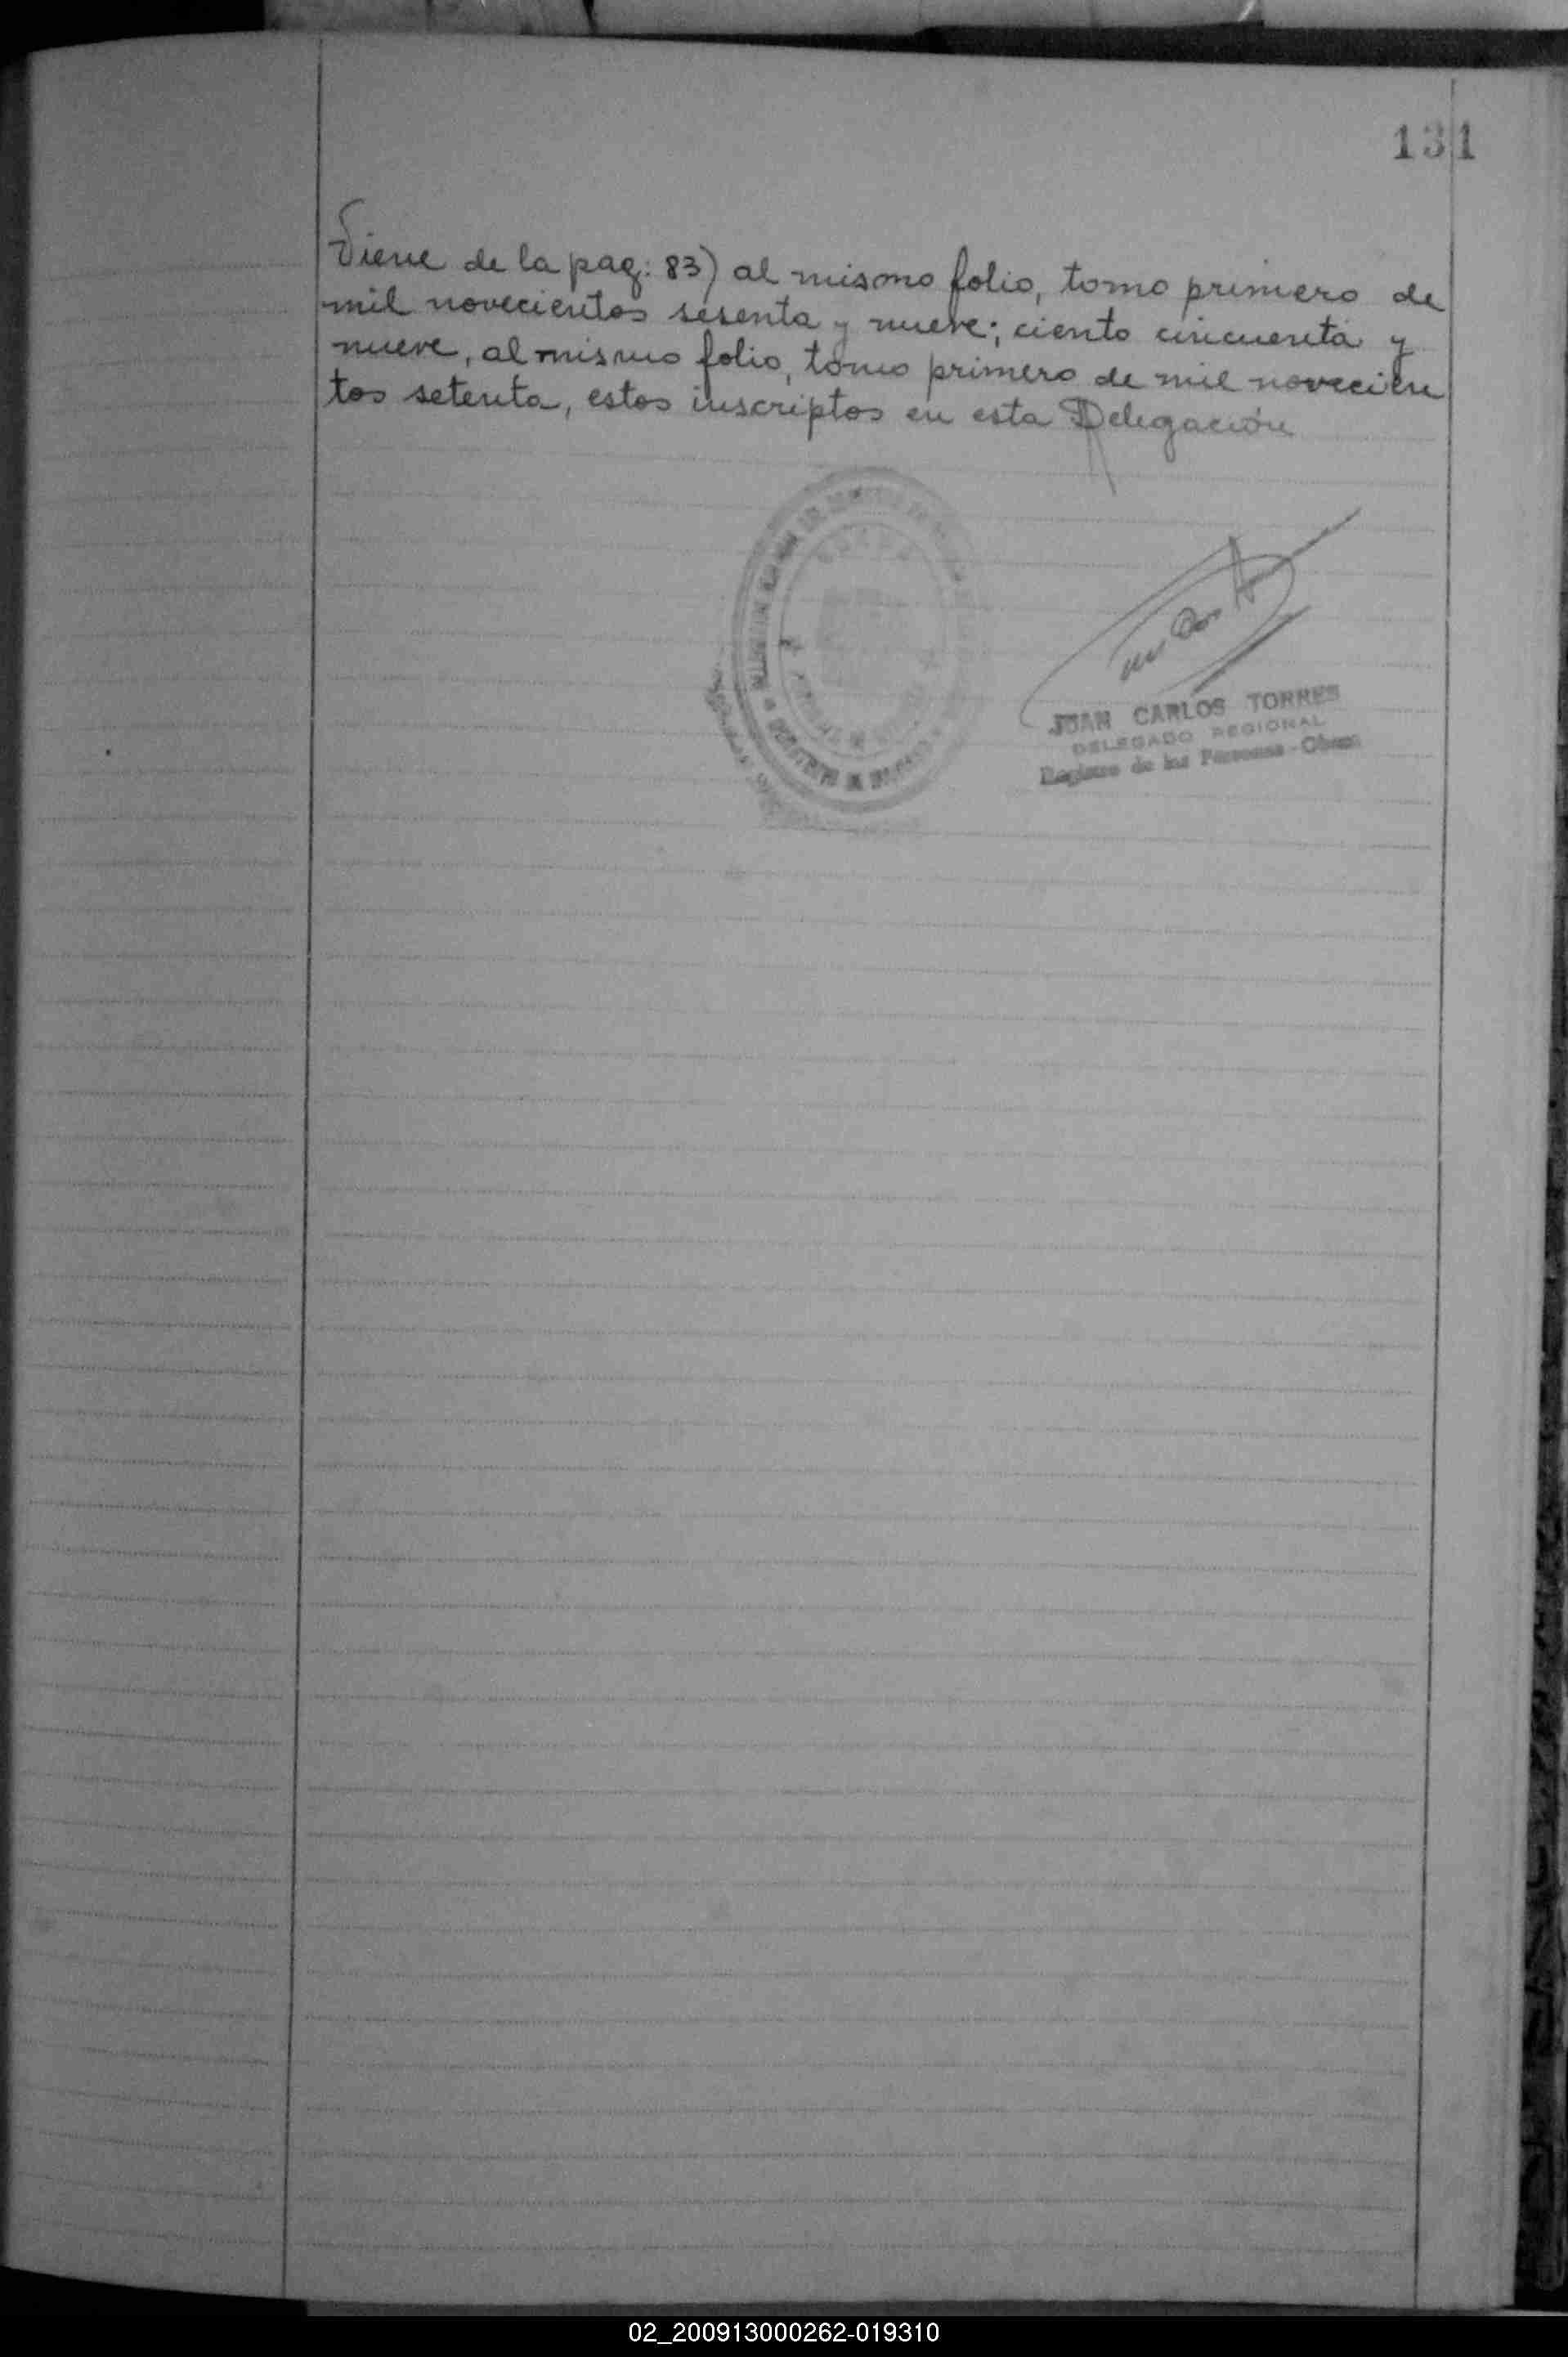 131
Viene de la pag: 83) al mismo folio, tomo primero de
mil novecientos sesenta y nueve; ciento cincuenta y
nueve, al mismo folio, tomo primero de mil novecien
tos setenta, estos inscriptos en esta Delegación
JUAN CARLOS TORRES
DELEGADO REGIONAL
Registro de las Personas - Oberá
02_200913000262-019310